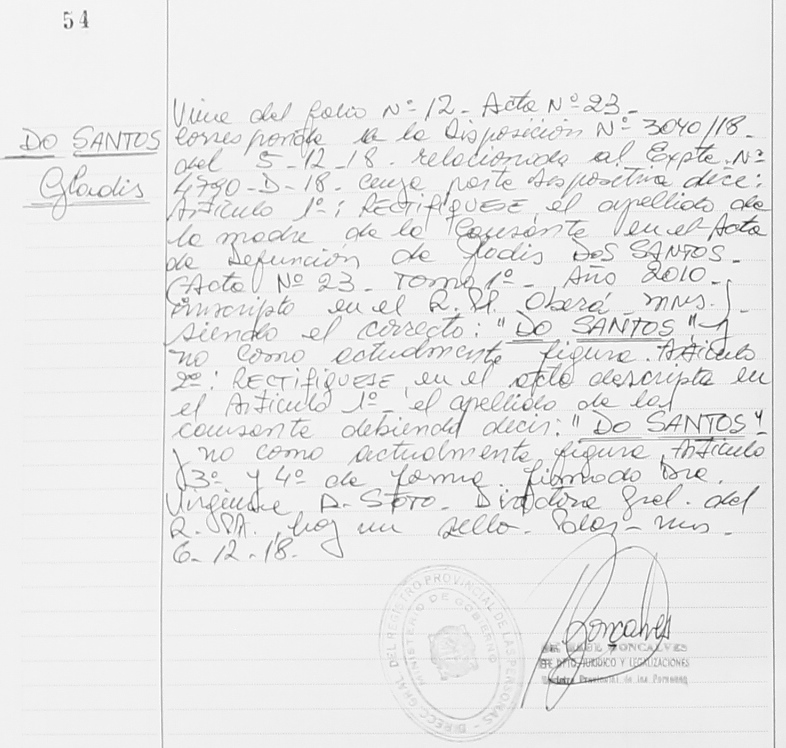 54
DO SANTOS
Gladis
Viene del folio Nº 12 - Acta Nº 23 -
corresponde a la Disposición Nº 3040/18 -
del 5-12-18. relacionada al Expte. Nº
4790-D-18. cuya parte dispositiva dice:
Artículo 1º: RECTIFÍQUESE el apellido de
la madre de la Causante en el Acta
de Defunción de Gladis DOS SANTOS -
(Acta Nº 23 - Tomo 1º - Año 2010 -
inscripta en el Oberá - mns.)
siendo el correcto: "DO SANTOS" y
no como actualmente figura. Artículo
2º: RECTIFÍQUESE en el acta descripta en
el Artículo 1º el apellido de la
causante debiendo decir: "DO SANTOS"
y no como actualmente figura, Artículo
3º y 4º de forma. firmado Dra.
A. Soto. Directora Gral. del
hay un sello. Pdas - mns -
6-12-18-
DIRECC. GRAL. DEL REGISTRO PROVINCIAL DE LAS PERSONAS
MINISTERIO DE GOBIERNO
Goncalves
GONCALVES
DPTO. JURIDICO Y LEGALIZACIONES
Registro Provincial de las Personas